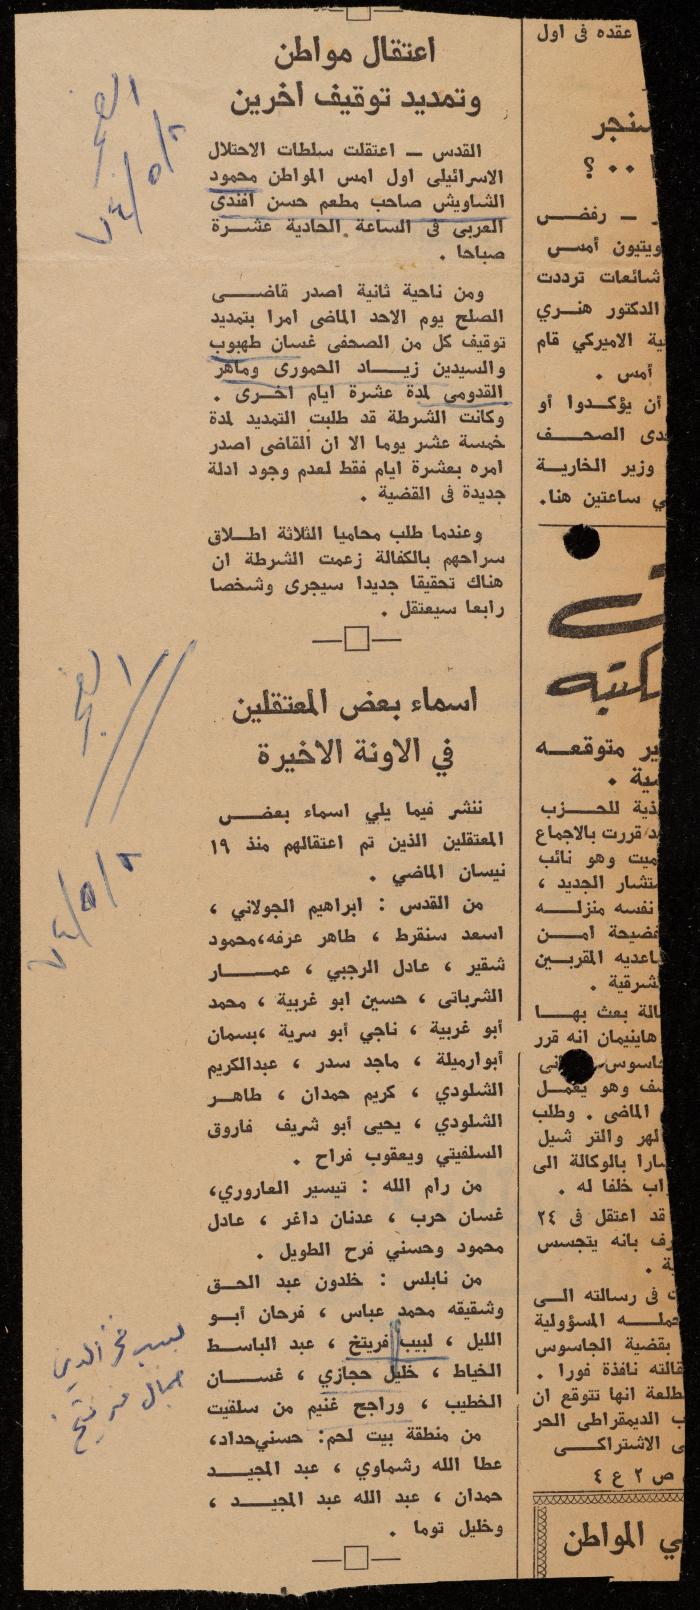 اعتقال مواطن
وتمديد توقيف آخرين
القدس — اعتقلت سلطات الاحتلال
الاسرائيلى اول امس المواطن محمود
الشاويش صاحب مطعم حسن افندى
العربى فى الساعة الحادية عشرة
صباحا .
ومن ناحية ثانية اصدر قاضى
الصلح يوم الاحد الماضى امرا بتمديد
توقيف كل من الصحفى غسان طهبوب
والسيدين زياد الحمورى وماهر
القدومى لمدة عشرة ايام اخرى .
وكانت الشرطة قد طلبت التمديد لمدة
خمسة عشر يوما الا ان القاضى اصدر
امره بعشرة ايام فقط لعدم وجود ادلة
جديدة فى القضية .
وعندما طلب محاميا الثلاثة اطلاق
سراحهم بالكفالة زعمت الشرطة ان
هناك تحقيقا جديدا سيجرى وشخصا
رابعا سيعتقل .
اسماء بعض المعتقلين
في الاونة الاخيرة
ننشر فيما يلي اسماء بعض
المعتقلين الذين تم اعتقالهم منذ ١٩
نيسان الماضي .
من القدس : ابراهيم الجولاني ،
اسعد سنقرط ، طاهر عرفه،محمود
شقير ، عادل الرجبي ، عمار
الشرباتى ، حسين ابو غربية ، محمد
أبو غربية ، ناجي أبو سرية ،بسمان
أبوارميلة ، ماجد سدر ، عبدالكريم
الشلودي ، كريم حمدان ، طاهر
الشلودي ، يحيى أبو شريف فاروق
السلفيتي ويعقوب فراح .
من رام الله : تيسير العاروري،
غسان حرب ، عدنان داغر ، عادل
محمود وحسني فرح الطويل .
من نابلس : خلدون عبد الحق
وشقيقه محمد عباس ، فرحان أبو
الليل ، لبيب فريتخ ، عبد الباسط
الخياط ، خليل حجازي ، غسان
الخطيب ، وراجح غنيم من سلفيت
من منطقة بيت لحم: حسني حداد،
عطا الله رشماوي ، عبد المجيد
حمدان ، عبد الله عبد المجيد ،
وخليل توما .
عقده فى اول
٠٠ ؟
— رفض
ويتيون أمس
شائعات ترددت
الدكتور هنري
ية الاميركي قام
أمس .
أن يؤكدوا أو
دى الصحف
وزير الخارية
ي ساعتين هنا.
ير متوقعه
مية .
ذية للحزب
قررت بالاجماع
ميت وهو نائب
ستشار الجديد ،
نفسه منزله
فضيحة امن
ساعديه المقربين
شرقية .
الة بعث بها
هاينيمان انه قرر
جاسوس
شف وهو يعمل
الماضى . وطلب
لهر والتر شيل
سارا بالوكالة الى
اب خلفا له .
قد اعتقل فى ٢٤
رف بانه يتجسس
ة .
ت فى رسالته الى
حمله المسؤولية
بقضية الجاسوس
قالته نافذة فورا .
طلعة انها تتوقع ان
ب الديمقراطى الحر
ى الاشتراكى
ص ٢ ع ٤
ي المواطن
الفجر
٧٤/٥/٢
الفجر
٧٤/٥/٢
لبيب فخر الدين
جمال فريتخ